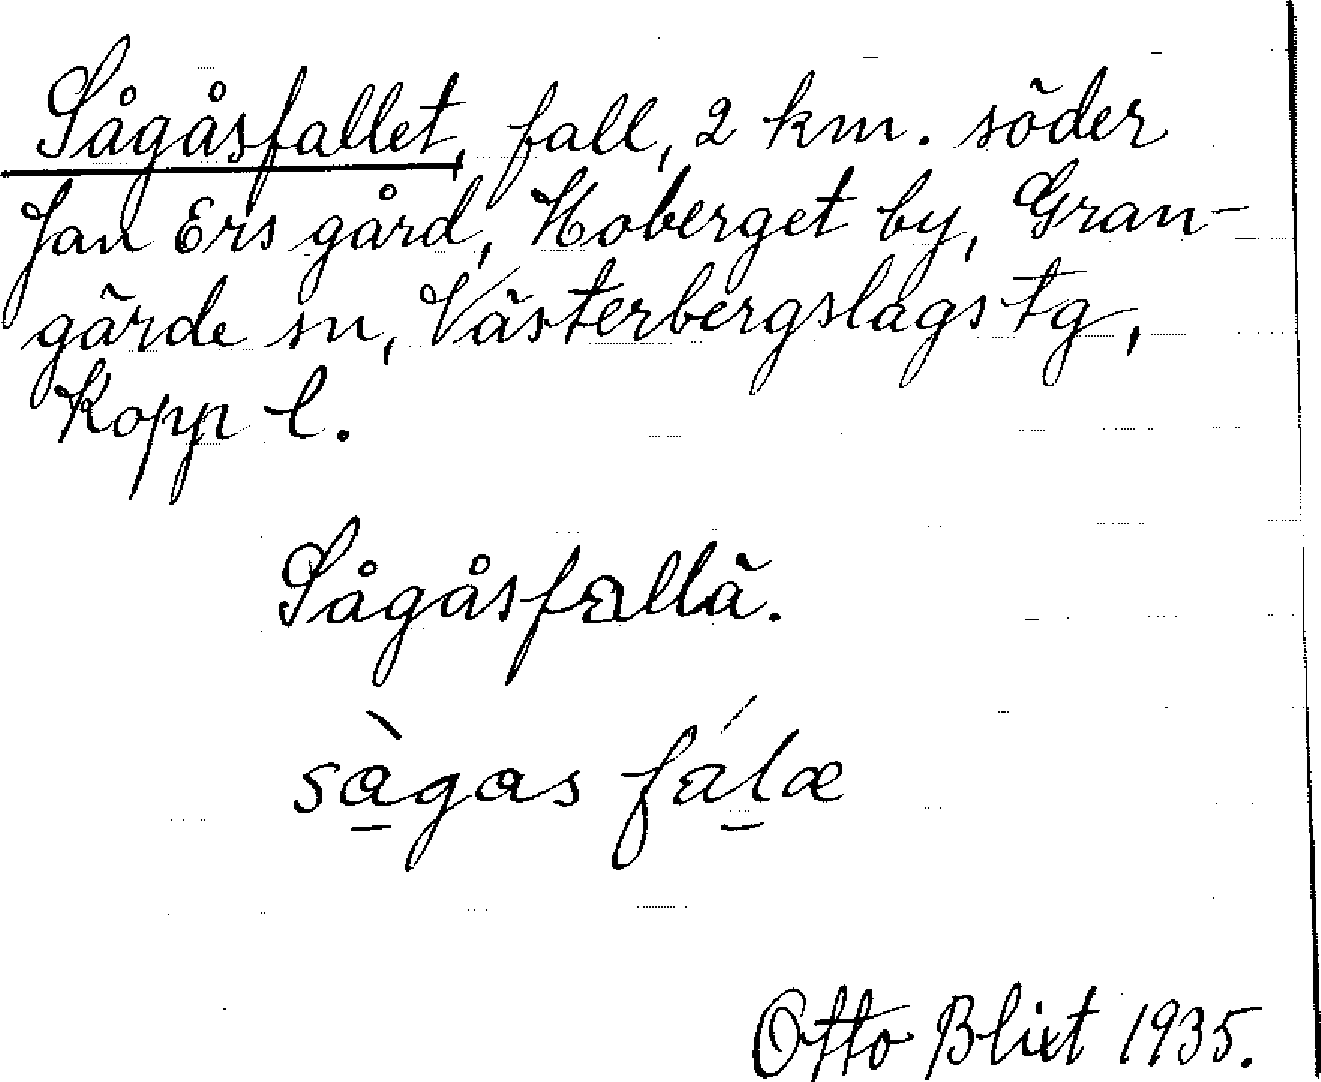 Sågåsfallet, fall, 2 km. söder
Jan Ers gård, Hoberget by, Gran-
gärde sn, Västerbergslags tg,
Kopp l.
Sågåsfallä.
sàgas fálæ
Otto Blixt 1935.